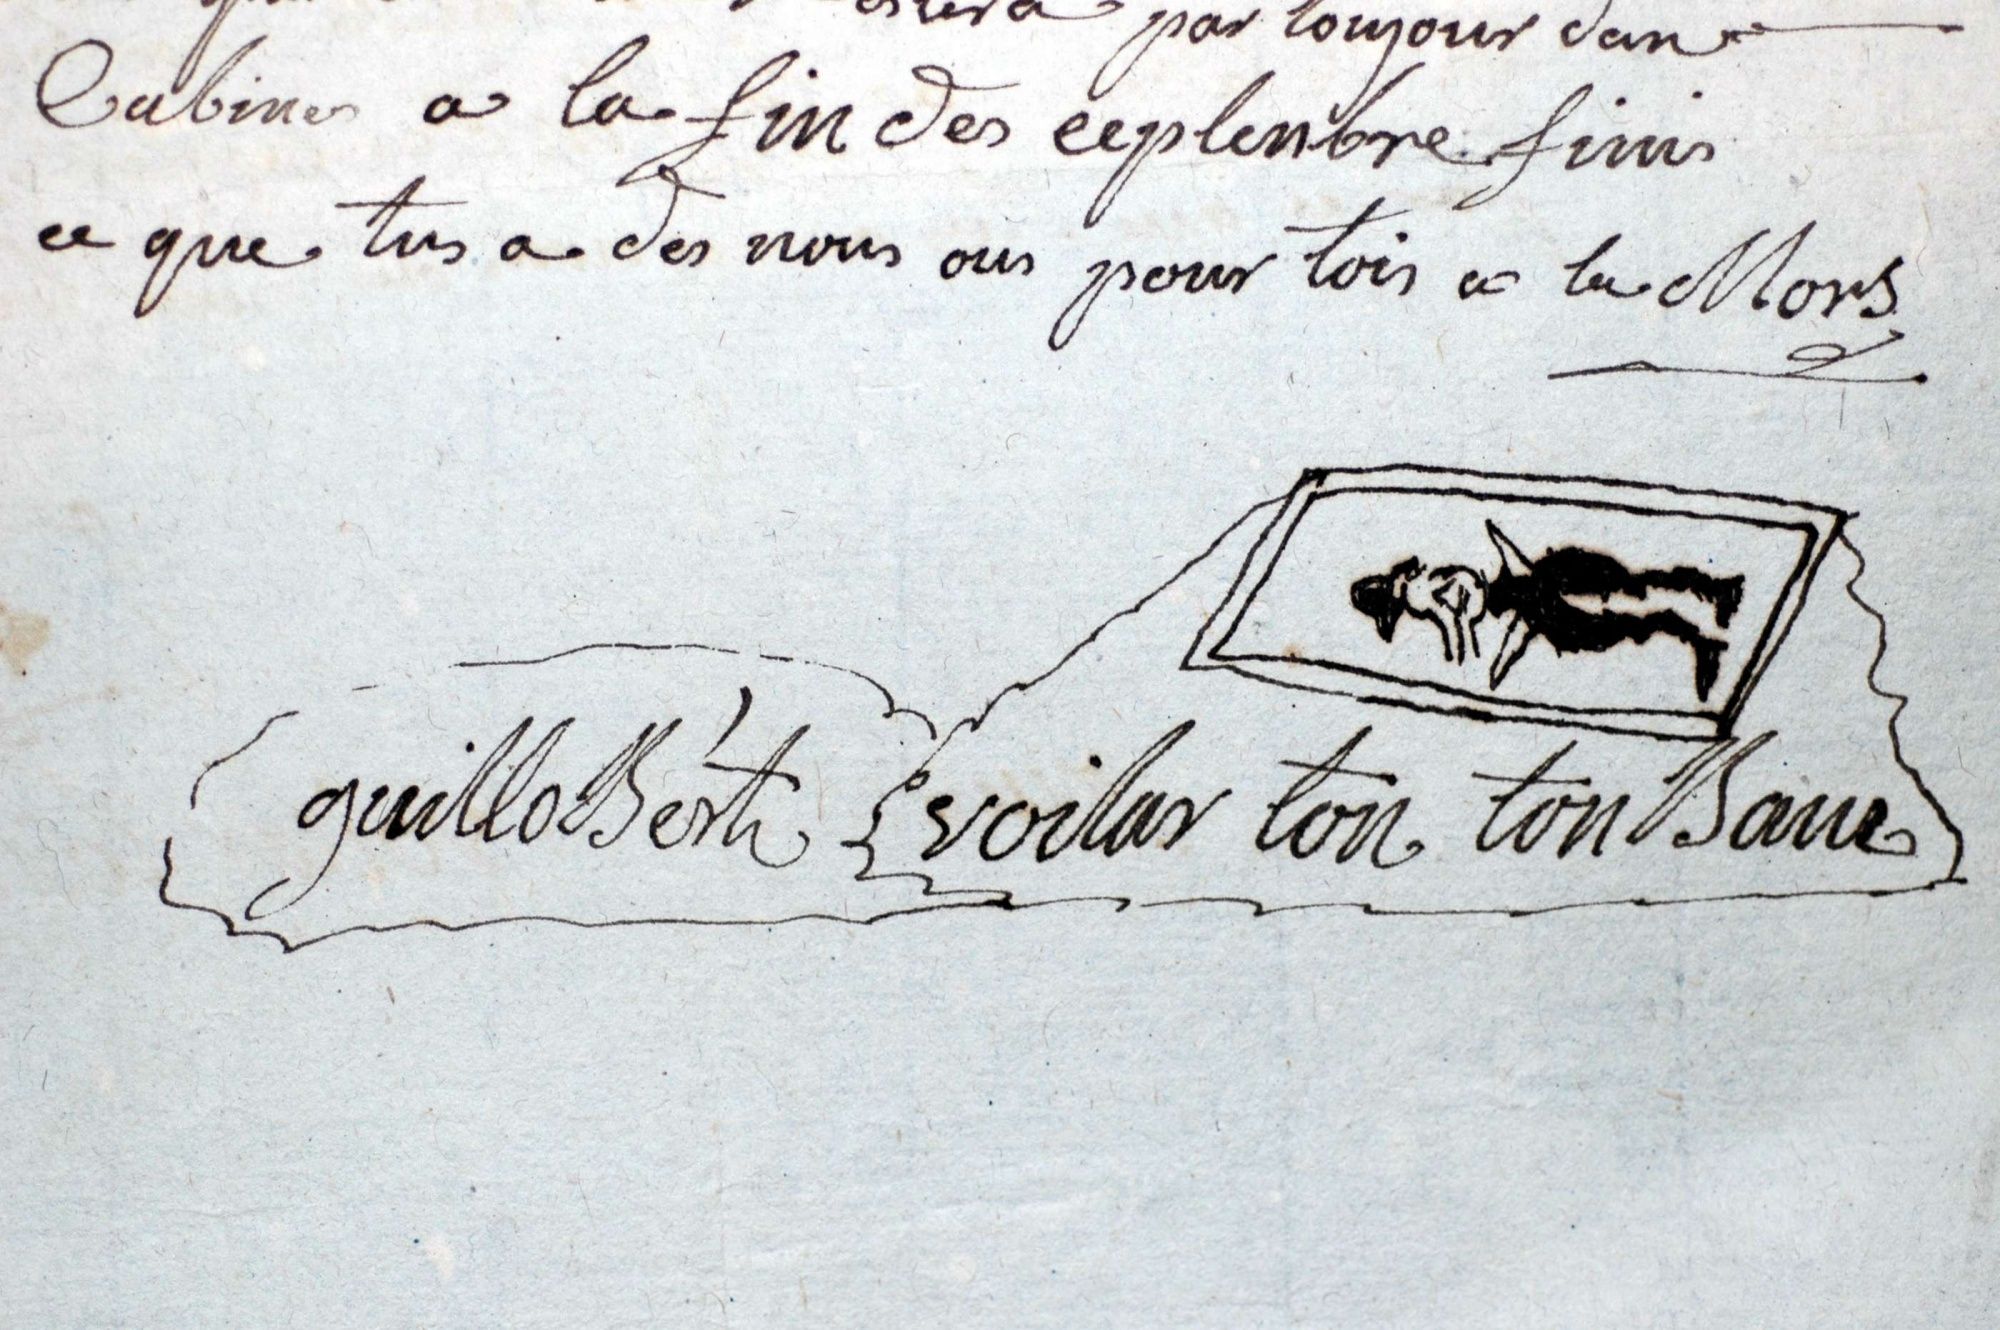 par toujour dan
Cabines a la fin des ceptenbre finis
ce que tus a des nous ous pour tois a la Mors
guilloBerti voilar ton tonBaue